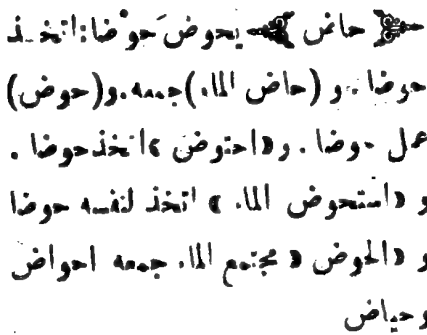 ﴿ حاض ﴾ يحوض حَوْضا: اتخذ
حوضا. و (حاض الماء) جمعه. و (حوض)
عمل حوضا. و «احتوض» اتخذ حوضا.
و «استحوض الماء» اتخذ لنفسه حوضا
و «الحوض» مجتمع الماء. جمعه احواض
وحياض